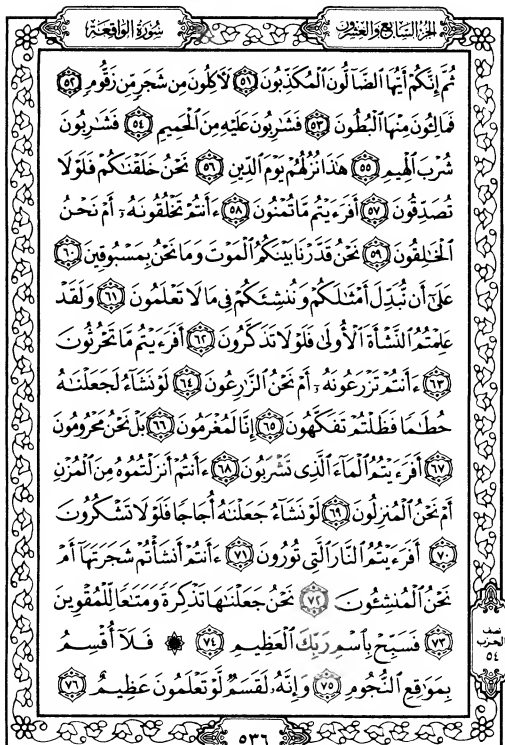 الجزء السابع والعشرون
سورة الواقعة
ثُمَّ إِنَّكُمْ أَيُّهَا الضَّآلُّونَ الْمُكَذِّبُونَ ﴿٥١﴾ لَآكِلُونَ مِن شَجَرٍ مِّن زَقُّومٍ ﴿٥٢﴾
فَمَالِئُونَ مِنْهَا الْبُطُونَ ﴿٥٣﴾ فَشَارِبُونَ عَلَيْهِ مِنَ الْحَمِيمِ ﴿٥٤﴾ فَشَارِبُونَ
شُرْبَ الْهِيمِ ﴿٥٥﴾ هَٰذَا نُزُلُهُمْ يَوْمَ الدِّينِ ﴿٥٦﴾ نَحْنُ خَلَقْنَاكُمْ فَلَوْلَا
تُصَدِّقُونَ ﴿٥٧﴾ أَفَرَءَيْتُم مَّا تُمْنُونَ ﴿٥٨﴾ ءَأَنتُمْ تَخْلُقُونَهُۥٓ أَمْ نَحْنُ
الْخَٰلِقُونَ ﴿٥٩﴾ نَحْنُ قَدَّرْنَا بَيْنَكُمُ الْمَوْتَ وَمَا نَحْنُ بِمَسْبُوقِينَ ﴿٦٠﴾
عَلَىٰٓ أَن نُّبَدِّلَ أَمْثَٰلَكُمْ وَنُنشِئَكُمْ فِي مَا لَا تَعْلَمُونَ ﴿٦١﴾ وَلَقَدْ
عَلِمْتُمُ النَّشْأَةَ الْأُولَىٰ فَلَوْلَا تَذَكَّرُونَ ﴿٦٢﴾ أَفَرَءَيْتُم مَّا تَحْرُثُونَ
﴿٦٣﴾ ءَأَنتُمْ تَزْرَعُونَهُۥٓ أَمْ نَحْنُ الزَّٰرِعُونَ ﴿٦٤﴾ لَوْ نَشَآءُ لَجَعَلْنَٰهُ
حُطَٰمًا فَظَلْتُمْ تَفَكَّهُونَ ﴿٦٥﴾ إِنَّا لَمُغْرَمُونَ ﴿٦٦﴾ بَلْ نَحْنُ مَحْرُومُونَ
﴿٦٧﴾ أَفَرَءَيْتُمُ الْمَآءَ الَّذِي تَشْرَبُونَ ﴿٦٨﴾ ءَأَنتُمْ أَنزَلْتُمُوهُ مِنَ الْمُزْنِ
أَمْ نَحْنُ الْمُنزِلُونَ ﴿٦٩﴾ لَوْ نَشَآءُ جَعَلْنَٰهُ أُجَاجًا فَلَوْلَا تَشْكُرُونَ
﴿٧٠﴾ أَفَرَءَيْتُمُ النَّارَ الَّتِي تُورُونَ ﴿٧١﴾ ءَأَنتُمْ أَنشَأْتُمْ شَجَرَتَهَآ أَمْ
نَحْنُ الْمُنشِـُٔونَ ﴿٧٢﴾ نَحْنُ جَعَلْنَٰهَا تَذْكِرَةً وَمَتَٰعًا لِّلْمُقْوِينَ
﴿٧٣﴾ فَسَبِّحْ بِاسْمِ رَبِّكَ الْعَظِيمِ ﴿٧٤﴾ ۞ فَلَآ أُقْسِمُ
بِمَوَٰقِعِ النُّجُومِ ﴿٧٥﴾ وَإِنَّهُۥ لَقَسَمٌ لَّوْ تَعْلَمُونَ عَظِيمٌ ﴿٧٦﴾
نصف
الحزب
٥٤
٥٣٦